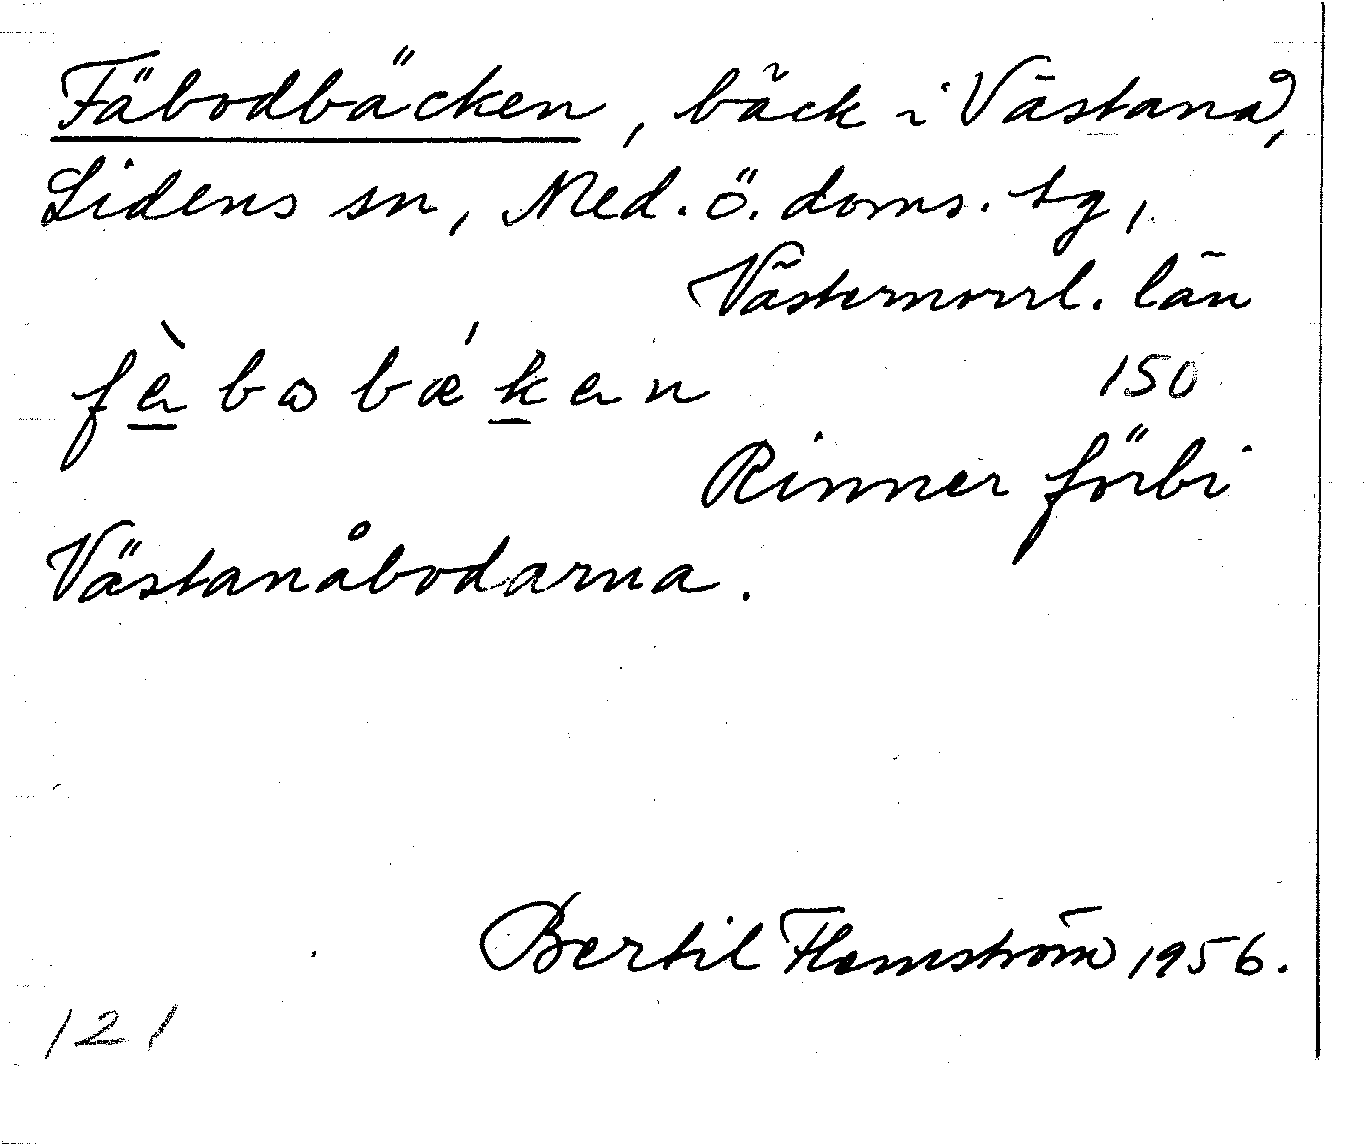 Fäbodbäcken, bäck i Västanå,
Lidens sn, Med. ö. doms. tg,
Västernorrl. län
fè̠bωbǽk̠en
150
Rinner förbi
Västanåbodarna.
Bertil Flemström 1956.
121